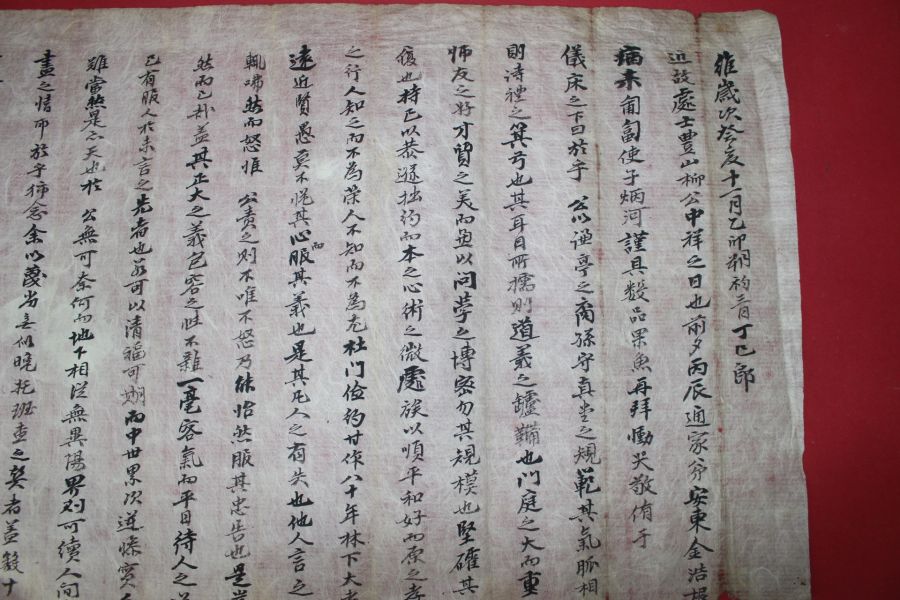 維歲次癸亥十一月乙卯朔初三日丁巳卽
近故處士豊山柳公中祥之日也前夕丙辰通家弟安東金浩
病未匍匐使子炳河謹具數品果魚再拜慟哭敬侑于
儀床之下曰於乎 公以謙亭之裔孫守眞堂之規範其氣脈相
則詩禮之箕弓也其耳目所擩則道義之罏鞴也門庭之大而重
師友之好才質之美而兼以問學之博密勿其規模也堅確其
復也持己以恭遜拙約而本之心術之微處族以順平和好而原之孝
之行人知之而不爲榮人不知而不爲 杜門儉約廿作八十年林下大
遠近賢愚莫不悅其心而服其義也是其凡人之有失也他人言之
輒 然而怒惟 公責之則不唯不怒乃能怡然服其忠告也是豈
然而已哉盖其正大之義包容之性不雜一毫客氣而平日待人之
已有服人於未言之先者也若可以淸福可期而中世累次逆慘實
雖當然是亦天也於 公無可奈何而地下相從無異陽界則可續人間
盡之情耶於乎 念余以蒙劣 晩托 查之契者盖數十